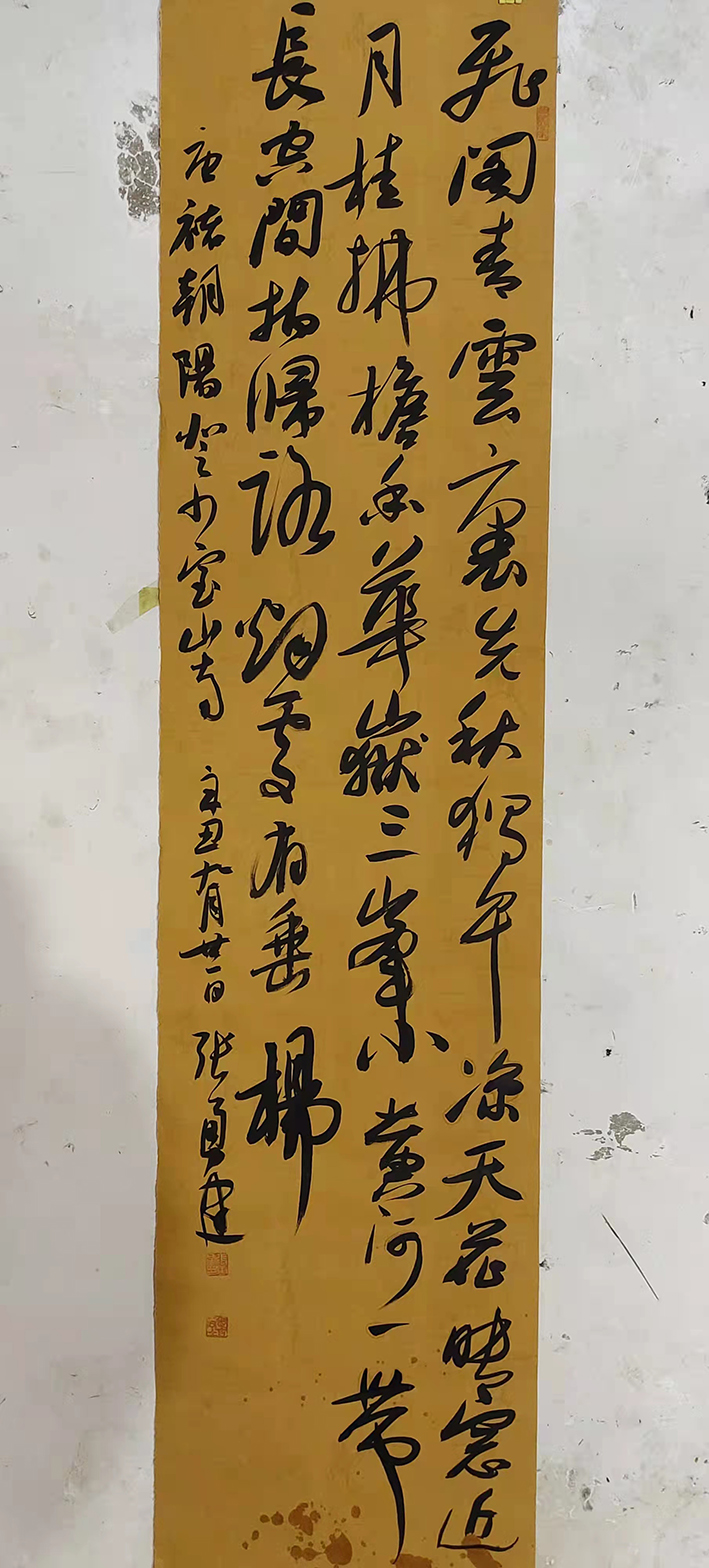 飛閣青雲裏先秋獨早凉天花晴窓近
月桂拂檐香華嶽三峯小黄河一帶
長空間指歸路烟處有垂楊
唐褚朝陽登少室山寺 辛丑九月廿一日 張建